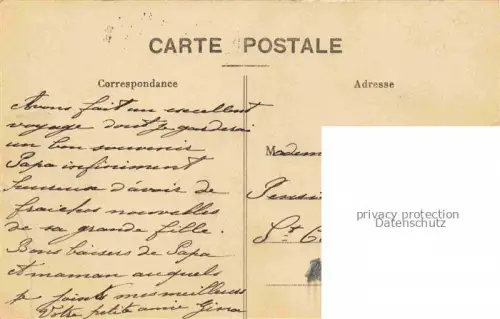 CARTE POSTALE
Correspondance
Adresse
Avons fait un excellent
voyage dont je garderai
un bon souvenir
Papa infiniment
heureux d'avoir de
fraiches nouvelles
de sa grande fille.
Bons baisers de Papa
& maman auxquels
je joints mes meilleurs
Votre petite amie Gina
Madem
Pensi
St C
privacy protection
Datenschutz